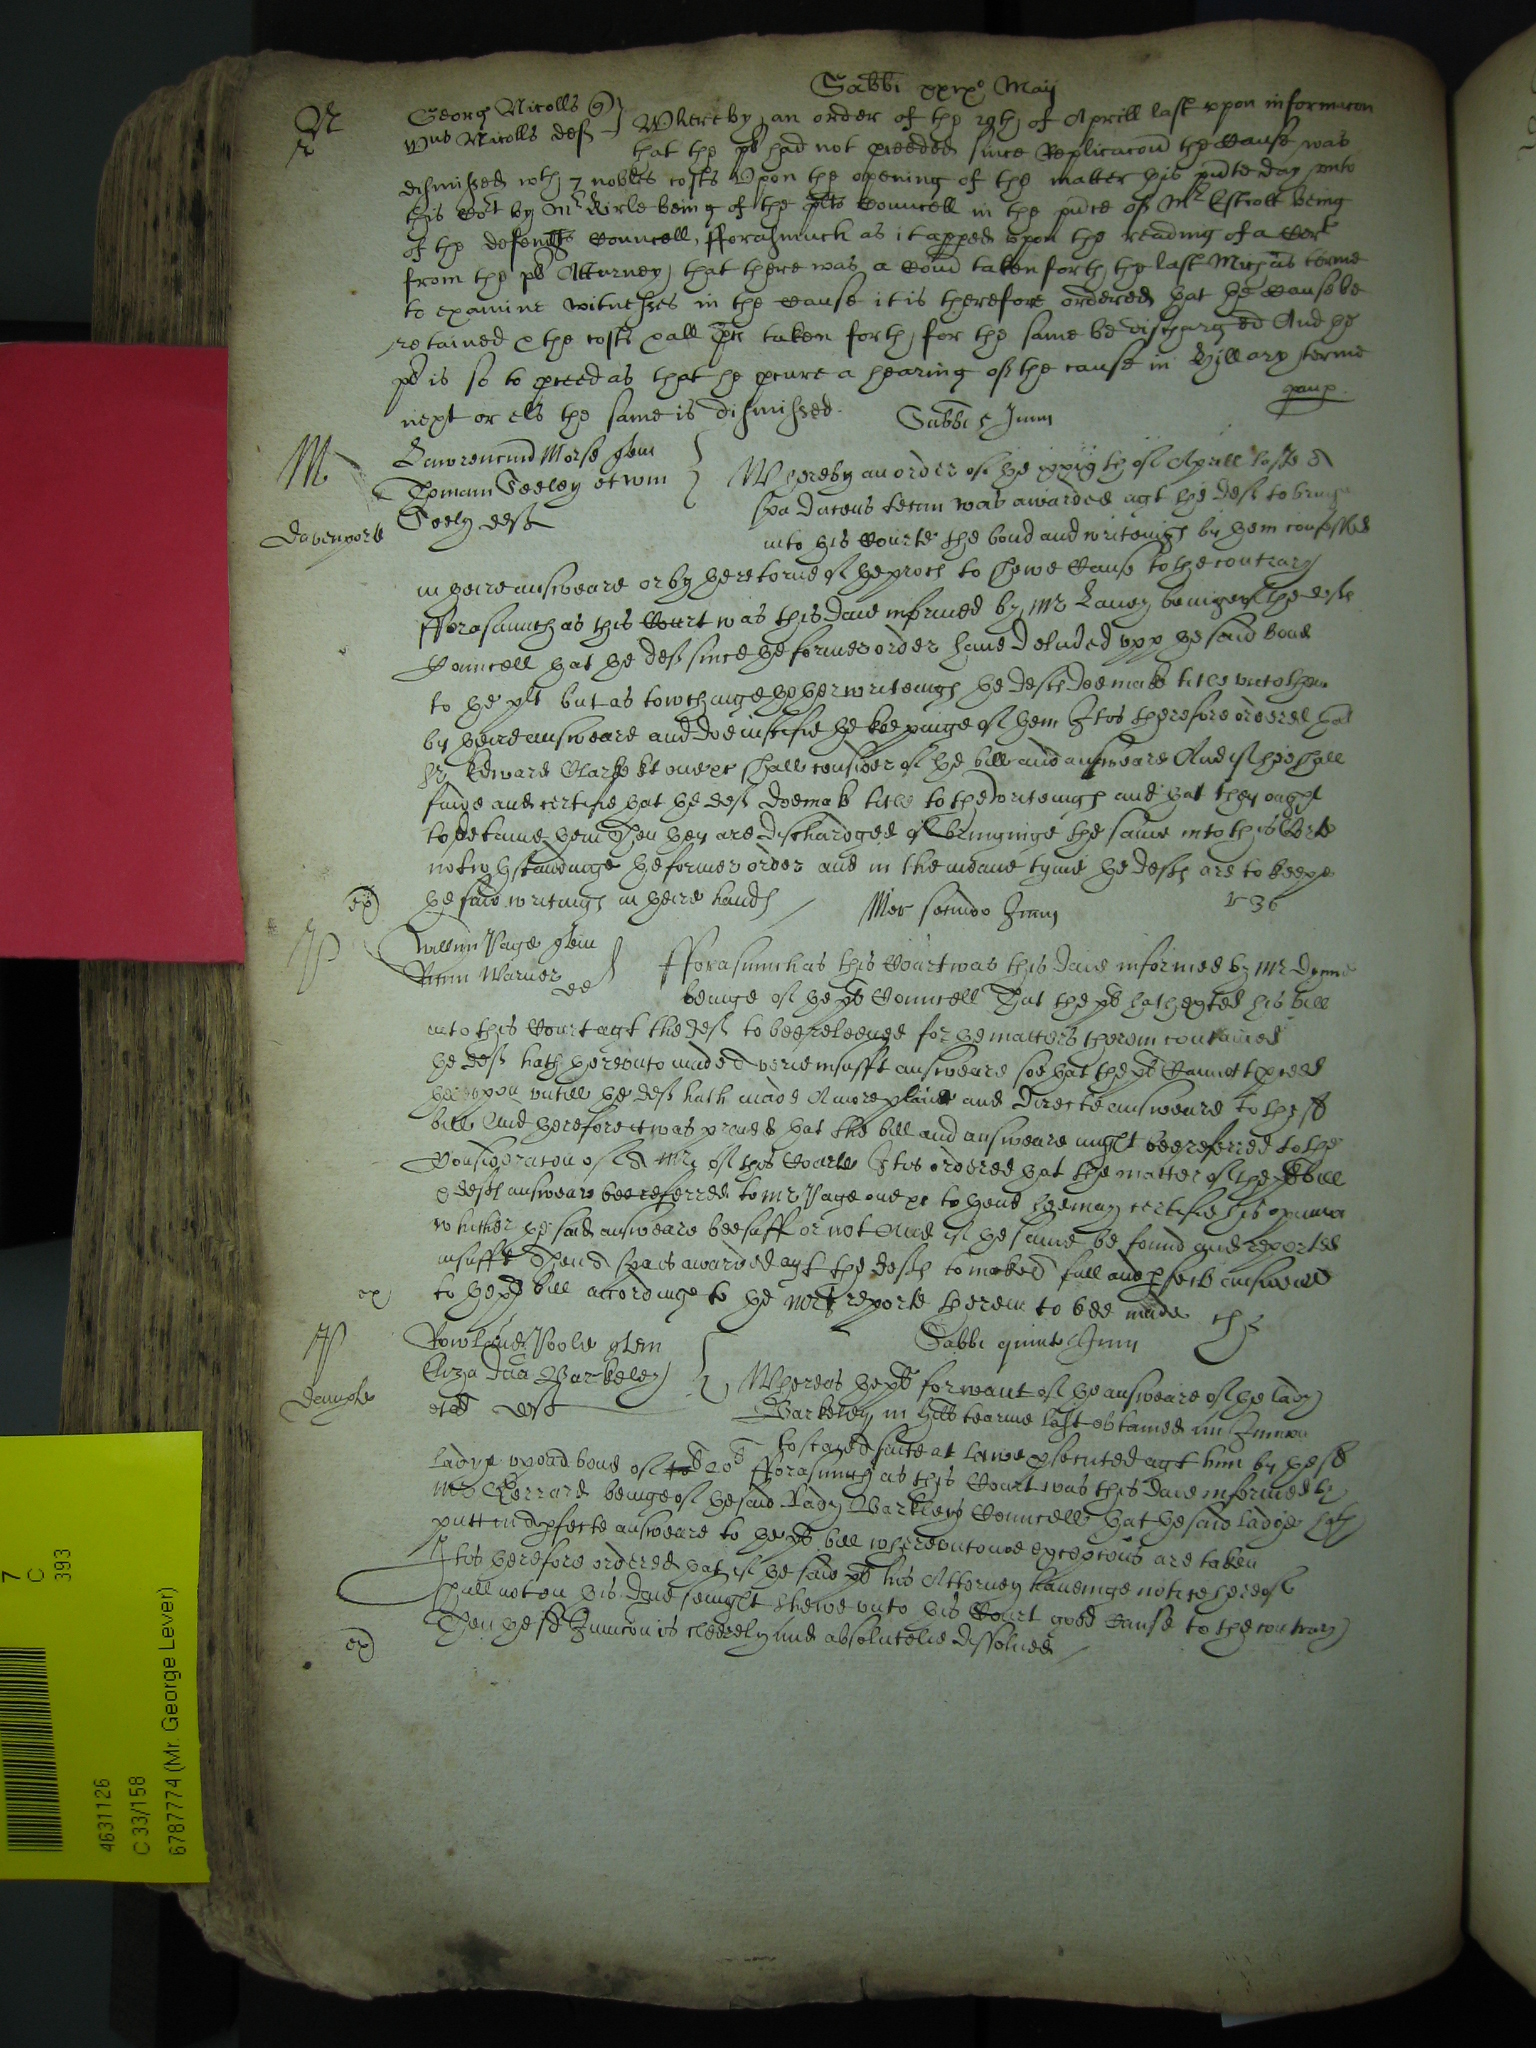 Sabbi xxix° Maij
N
Georg Nicolls q
Wms Nicolls def
Whereby an order of the 29th of Aprill last upon informacon
that the pl had not pceeded since Replicacon the cause was
dismissed wth 7 nobles costs Upon the opening of the matter this pnte day unto
this Cort by Mr Kirle being of the plts Councell in the pnce of Mr Estcott being
of the defents Councell, fforasmuch as it apped upon the reading of a Cert
from the pl Atturney that there was a Comd taken forth the last Michas terme
to examine witnesses in the cause it is therefore ordered that the cause be
retained & the costs & all pces taken forth for the same be discharged And the
pl is so to pceed as that he pcure a hearing of the cause in Hillary terme
next or els the same is dismissed.
Sabbi 5 Junii
M
Davenporte
Lawrencium Morse quer
Thomam Seeley et
Seely deft
Whereby an order of the of Aprill laste a
spa ducens tecum was awarded agt the def to bringe
into this Courte the bond and writeings by them confessed
in theire answeare or by the retorne of the proces to shewe cause to the contrary
fforasmuch as this Court was this daie informed by Mr Laney beinge of the defts
Councell that the def since the former order have delivred upp the said bond
to the plt but as towchinge thother writeings the defts doe make title unto them
by theire answeare and doe iustifie the keepinge of them It is therefore ordered that
Sr Edward Clarke kt one &c shall consider of the bill and answeare And if hee shall
finde and certifie that the def doe make title to the writeings and that they ought
to detaine them Then they are discharged of bringinge the same into this Corte
notwthstandinge the former order and in the meane tyme the defts are to keepe
the said writings in theire hands
Mer secundo Junii
P
Willm Page quer
Warner
def
fforasmuch as this Court was this daie informed by Mr
beinge of the pl Councell That the pl hath exhted his bill
into this Court agt the def to bee releeved for the matters therein contained
the def hath thereunto made a verie insufft answeare soe that the pl cannott pceed
thereupon untill the def hath made a more plaine and directe answeare to the sd
bill And therefore it was praied that the bill and answeare might bee referred to the
consideracon of a Mr of this Courte It is ordered that the matter of the pl bill
& defts answeare bee referred to Mr Page one &c to thend hee may certifie his opinion
whither the said answeare bee suff or not And if the same be found and reported
insufft then a spa is awarded agt the defts to make a full and pfecte answeare
to the pl bill accordinge to the Mrs reporte therein to bee made
P
Rowland Poole quer
Eliza dna Barkeley
et al deft
Sabbi quinto Junii
Whereas the pl for want of the answeare of the lady
Barkeley in last tearme last obtained an Iniuncon
to staye a suite at lawe psecuted agt him by the sd
Ladye upon a bond of fforasmuch as this Court was this daie informed by
Mr Gerrard beinge of the said Lady Barkleys Councell that the said Ladye hath
putt in a pfecte answeare to the pl bill whereunto noe excepcons are taken
It is therefore ordered that if the said pl his Attorney haveinge notice thereof
shall not on this daie seavight shewe unto this Court good cause to the contrary
Then the sd Iniuncon is cleerely and absolutelie dissolved
7
C
393
4631126
C 33/158
6787774 (Mr. George Lever)